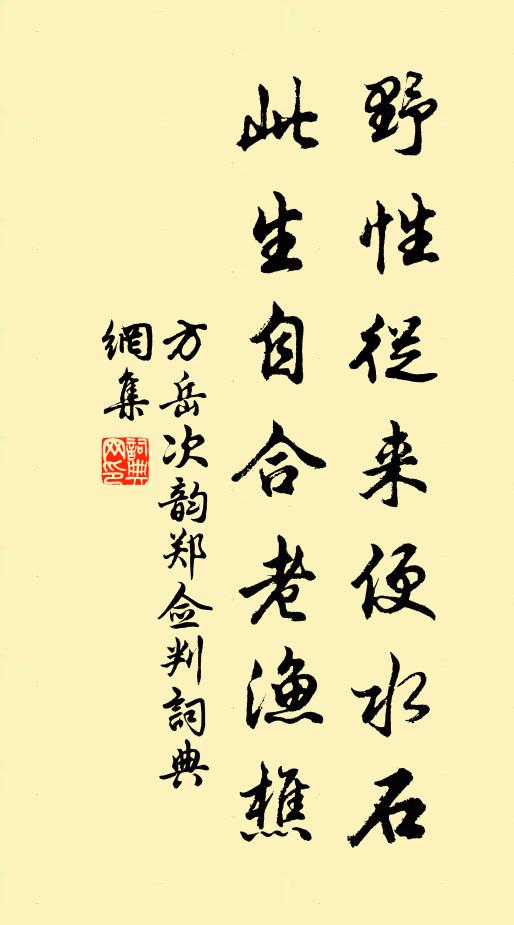 野性從来便水石
此生自合老漁樵
方岳次韵郑佥判詞典
網集
詞典網印